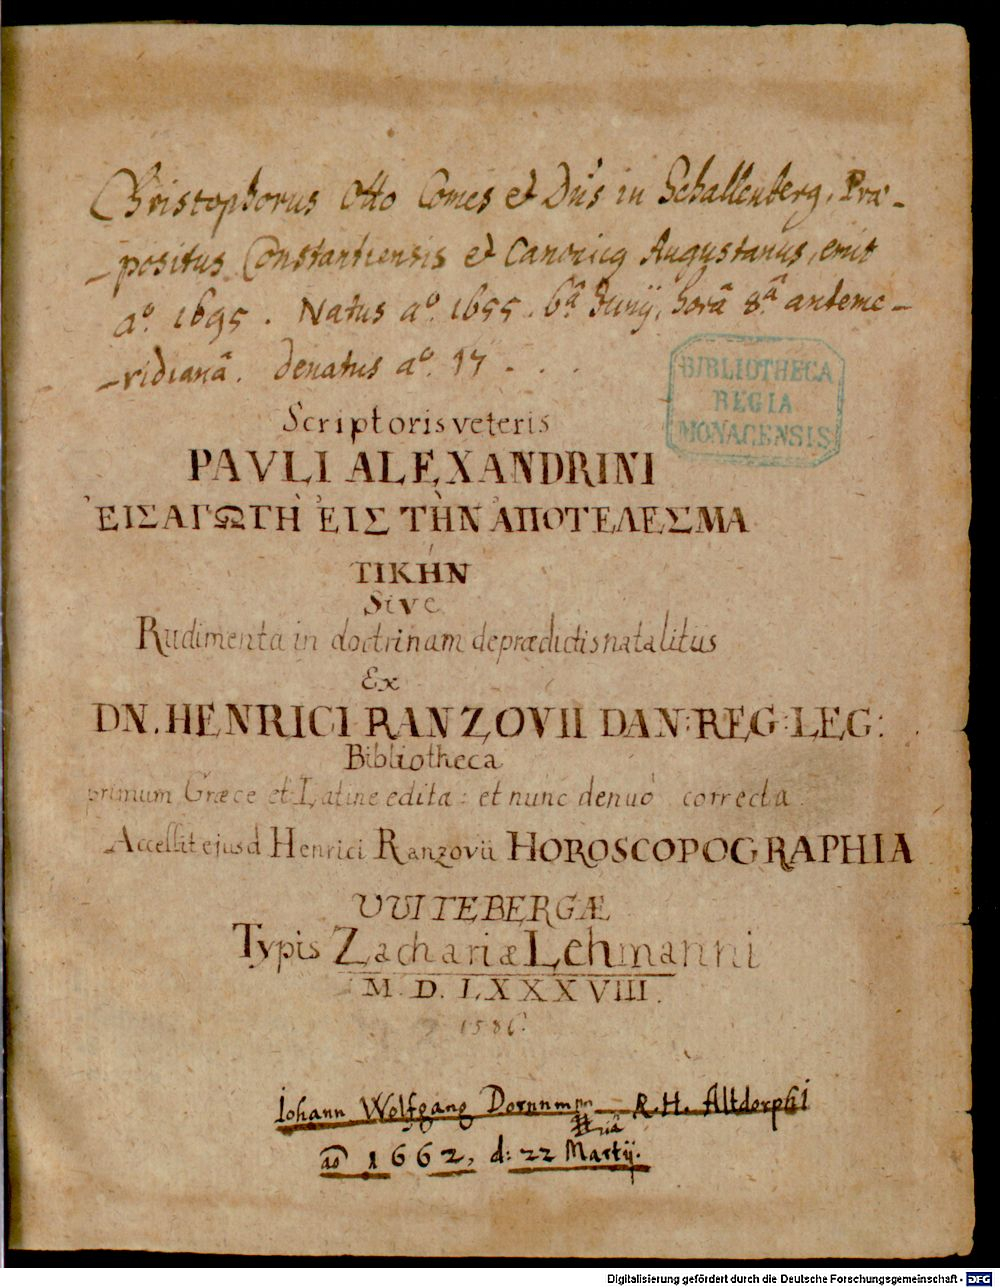 Christophorus Otto Comes et Dn̄s in Schallenberg, Præ-
-positus Constantiensis et Canonicꝗ Augustanus, emit
aº. 1695. Natus aº. 1655. 6ª Junij, horâ 8.ª anteme-
-ridianâ. denatus aº. 17 . . .
BIBLIOTHECA
REGIA
MONACENSIS
Scriptoris veteris
PAVLI ALEXANDRINI
ἘΙΣΑΓΩΓῊ ἘΙΣ ΤῊΝ ἈΠΟΤΕΛΕΣΜΑ
ΤΙΚΉΝ
Sive
Rudimenta in doctrinam de prædictis natalitiis
Ex
DN. HENRICI RANZOVII DAN: REG: LEG:
Bibliotheca
primum Græce et Latine edita: et nunc denuò correcta
Accessit ejusd Henrici Ranzovii HOROSCOPOGRAPHIA
VVITEBERGÆ
Typis Zachariæ Lehmanni
M. D. LXXXVIII.
1586.
Iohann Wolfgang R. H. Altdorphi
aō 1662, d: 22 Martij.
Digitalisierung gefördert durch die Deutsche Forschungsgemeinschaft - DFG